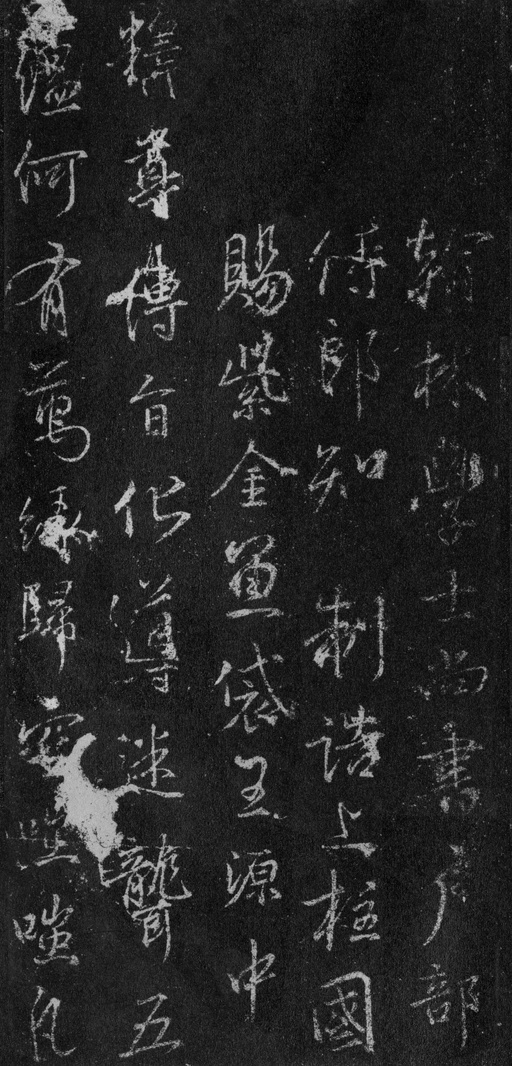 翰林學士尚書戶部
侍郎知制誥上柱國
賜紫金魚袋王源中
精尊傳旨偺導迷聾五
蘊何有萬緣歸空嗤嗤凡